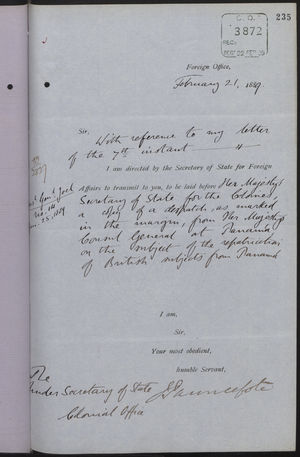 235
C.O.
3872
REC
REC? 22 FEB 89
Foreign Office,
February 21, 1889.
Sir,
With reference to my letter
of the 7th instant
I am directed by the Secretary of State for Foreign
Affairs to transmit to you, to be laid before Her Majesty's
Secretary of State for the Colonies,
a copy of a despatch, as marked
in the margin, from Her Majesty's
Consul General at Panama,
on the subject of the repatriation
of British subjects from Panama
I am,
Sir,
Your most obedient,
humble Servant,
The
Under Secretary of State
Colonial Office
J Pauncefote